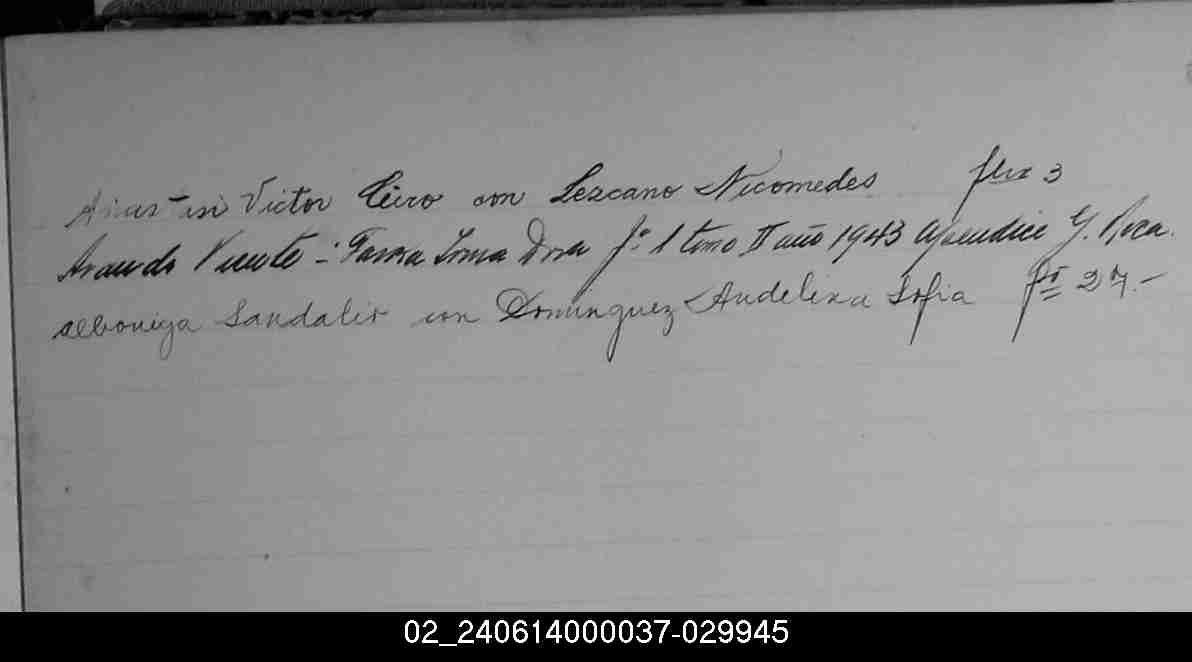 Anastasi Victor Ciro con Lezcano Nicomedes flio 3
Arando Vicente - Farra Irma Dora fº 1 tomo II año 1943 apendice G. Roca.
alboniga Sandalio con Dominguez Andelina Sofia fº 27.-
02_240614000037-029945